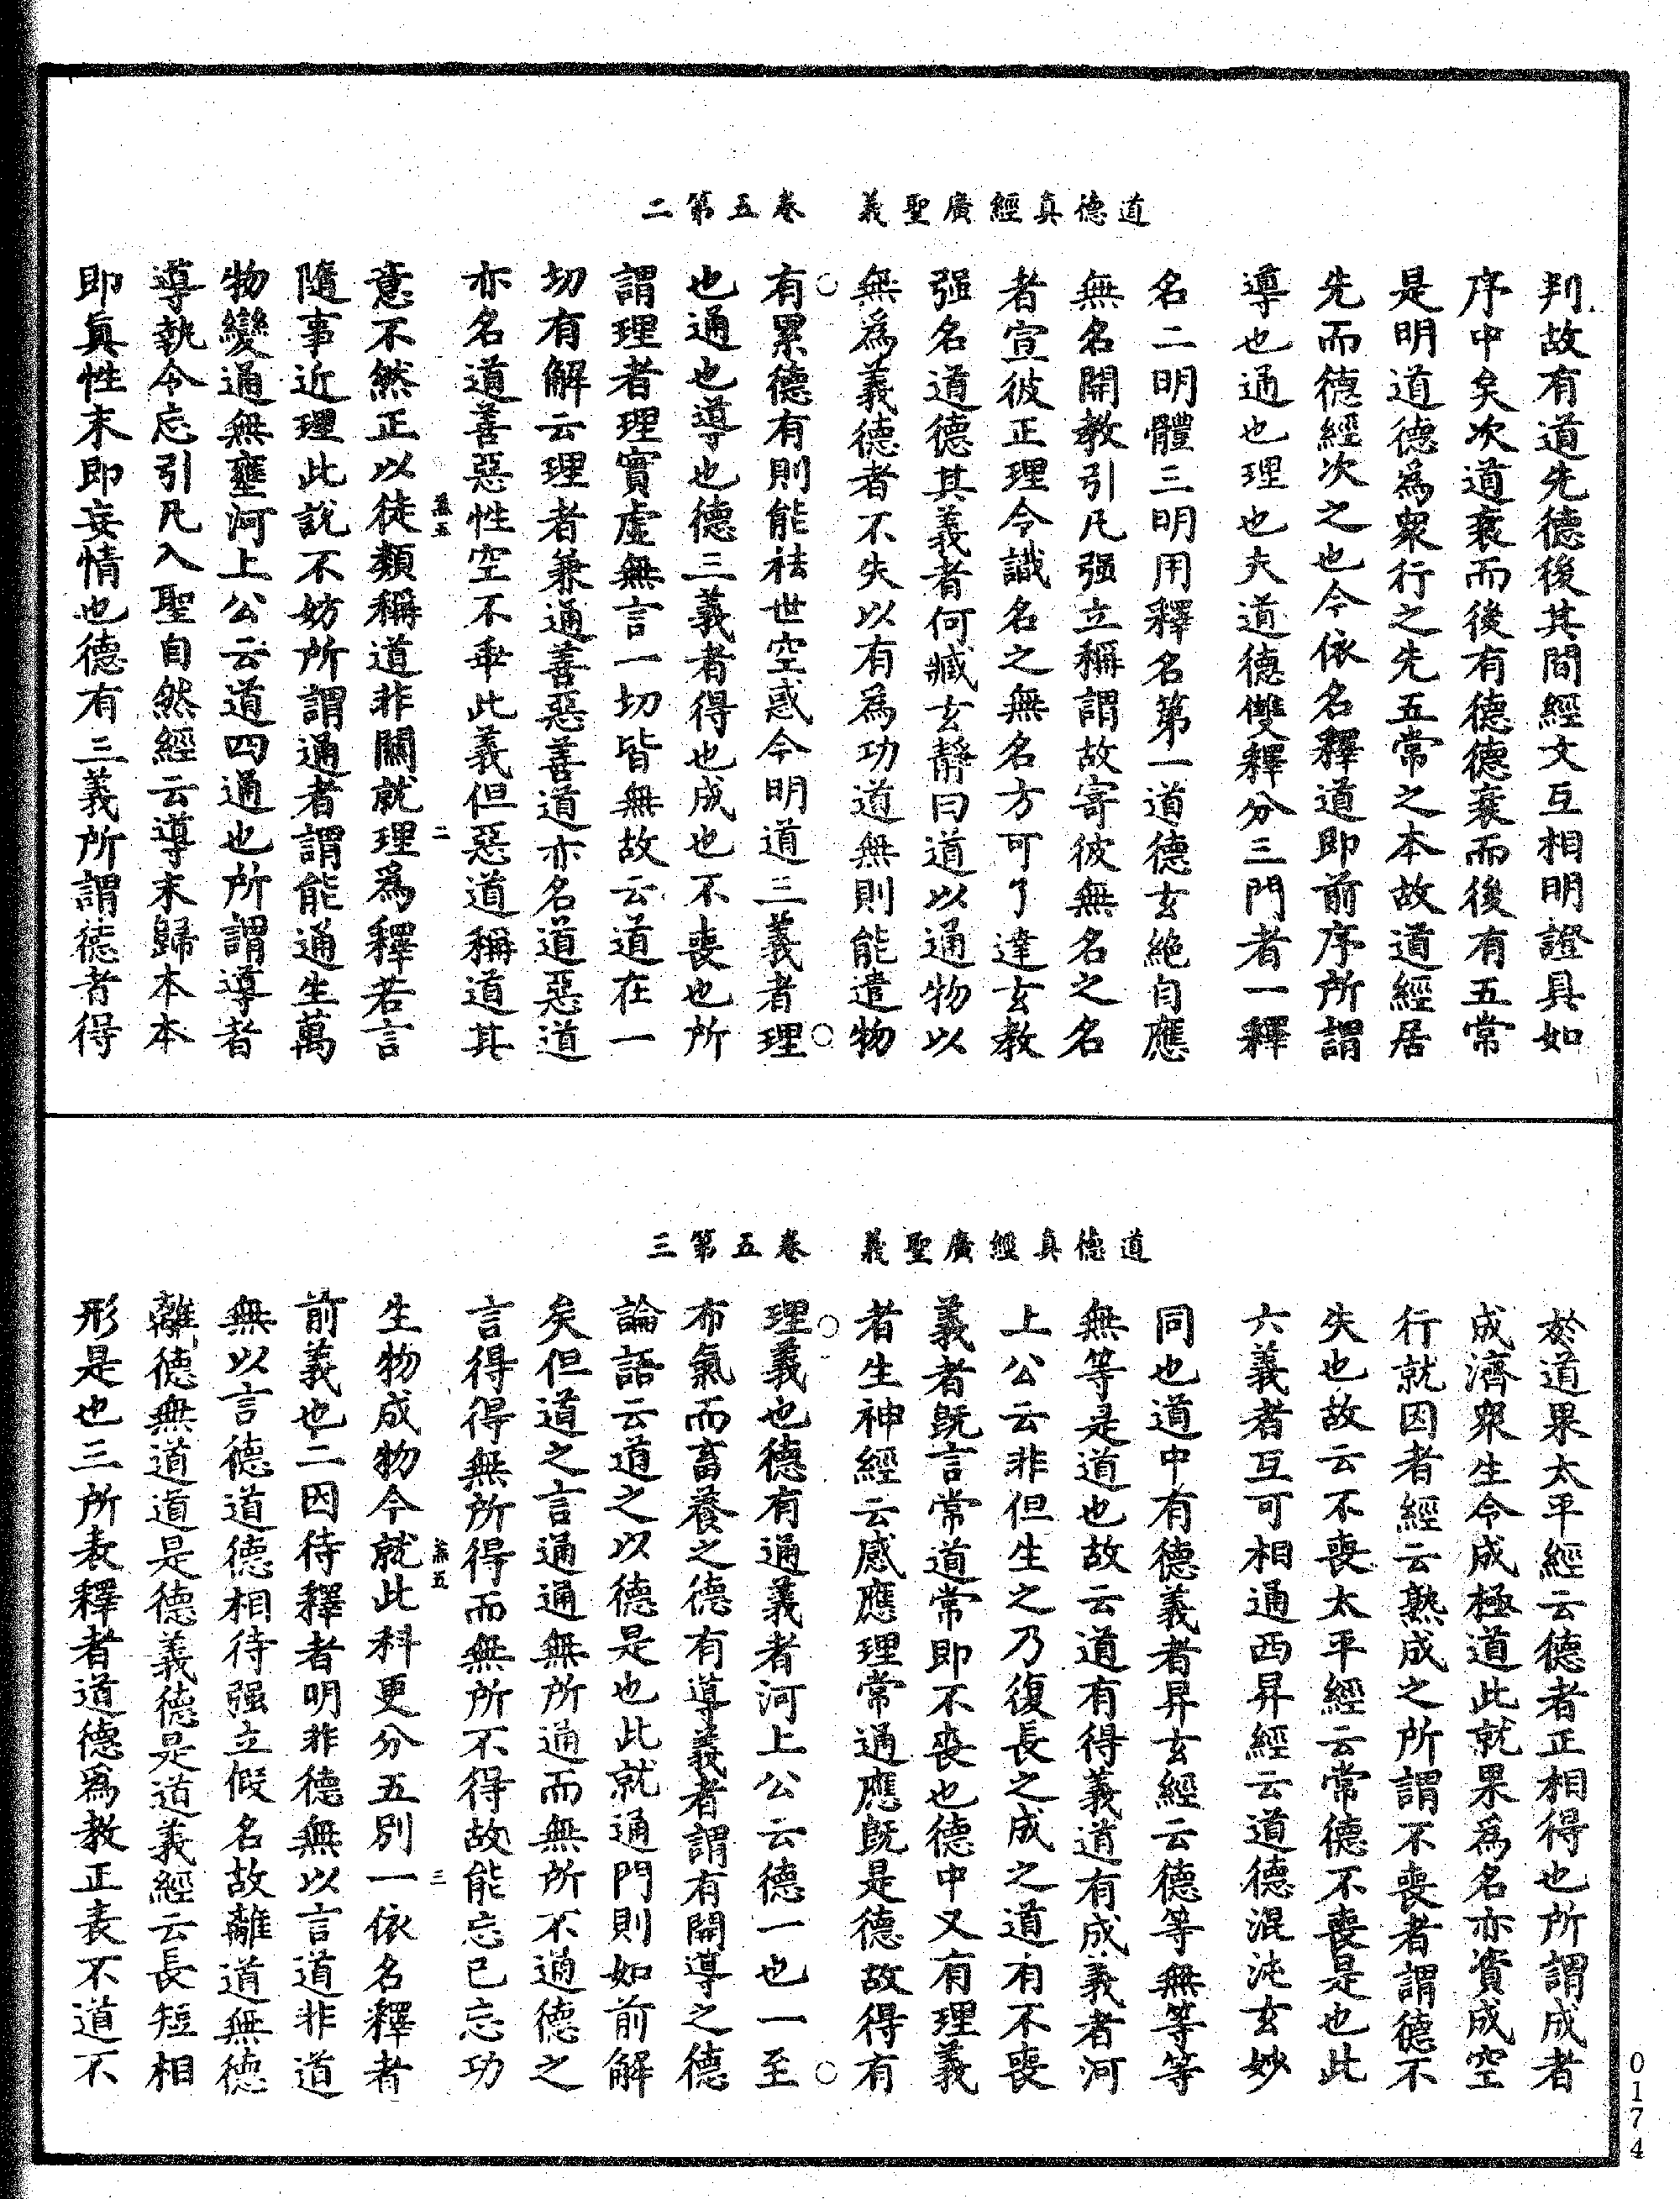 道德真經廣聖義　卷五第二
判故有道先德後其間經文互相明證具如
序中矣次道衰而後有德德衰而後有五常
是明道德為衆行之先五常之本故道經居
先而德經次之也今依名釋道即前序所謂
導也通也理也夫道德雙釋分三門者一釋
名二明體三明用釋名第一道德玄絕自應
無名開教引凡强立稱謂故寄彼無名之名
者宣彼正理令識名之無名方可了達玄教
强名道德其義者何臧玄靜曰道以通物以
無為義德者不失以有為功道無則能遣物
有累德有則能祛世空惑今明道三義者理
也通也導也德三義者得也成也不喪也所
謂理者理實虛無言一切皆無故云道在一
切有解云理者兼通善惡善道亦名道惡道
亦名道善惡性空不乖此義但惡道稱道其
意不然正以徒類稱道非關就理為釋若言
隨事近理此說不妨所謂通者謂能通生萬
物變通無壅河上公云道四通也所謂導者
導執令忘引凡入聖自然經云導末歸本本
即真性末即妄情也德有三義所謂德者得
道德真經廣聖義　卷五第三
於道果太平經云德者正相得也所謂成者
成濟衆生令成極道此就果為名亦資成空
行就因者經云熟成之所謂不喪者謂德不
失也故云不喪太平經云常德不喪是也此
六義者互可相通西昇經云道德混沌玄妙
同也道中有德義者昇玄經云德等無等等
無等是道也故云道有得義道有成義者河
上公云非但生之乃復長之成之道有不喪
義者旣言常道常即不喪也德中又有理義
者生神經云感應理常通應旣是德故得有
理義也德有通義者河上公云德一也一至
布氣而畜養之德有導義者謂有開導之德
論語云道之以德是也此就通門則如前解
矣但道之言通通無所通而無所不通德之
言得得無所得而無所不得故能忘已忘功
生物成物今就此科更分五別一依名釋者
前義也二因待釋者明非德無以言道非道
無以言德道德相待强立假名故離道無德
離德無道道是德義德是道義經云長短相
形是也三所表釋者道德為教正表不道不
0174